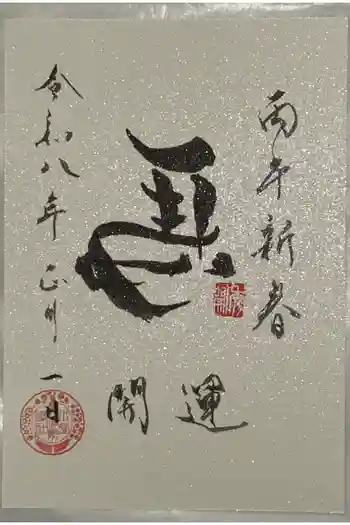 丙午新春
馬
開運
令和八年正月一日